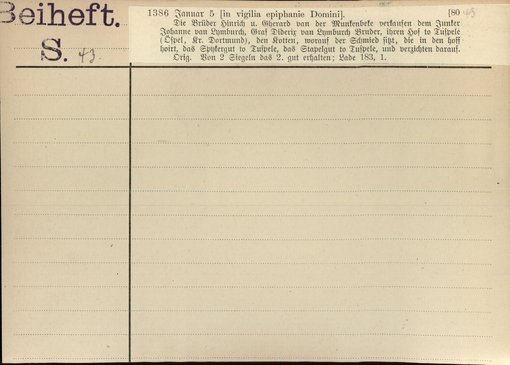 Beiheft.
S. 43
1386 Januar 5 [in vigilia epiphanie Domini]. [80
Die Brüder Hinrich u. Gherard van der Munkenbeke verkaufen dem Junker
Johanne van Lymburch, Graf Dideritz van Lymburch Bruder, ihren Hof to Tuspele
(Öspel, Kr. Dortmund), den Kotten, worauf der Schmied sitzt, die in den hoff
hoirt, das Spykergut to Tuspele, das Stapelgut to Tuspele, und verzichten darauf.
Orig. Von 2 Siegeln das 2. gut erhalten; Lade 183, 1.